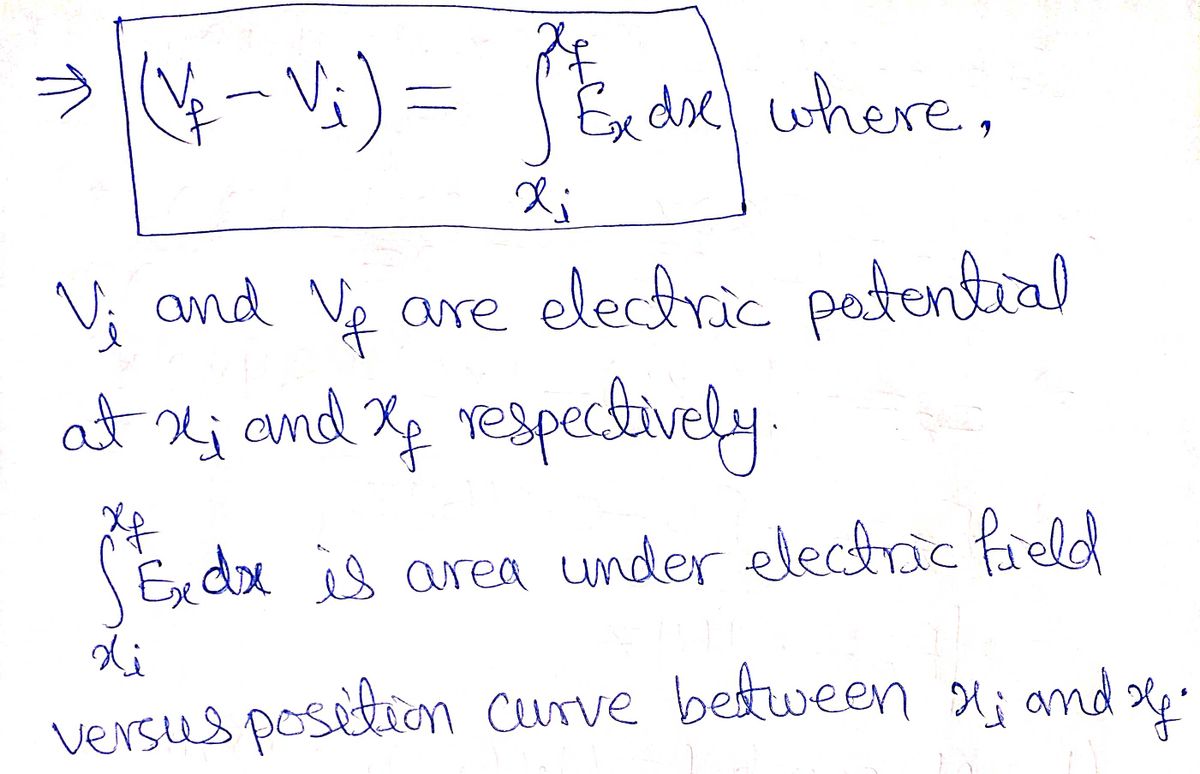 ⇒ (V_f - V_i) = ∫_{x_i}^{x_f} E_x dx where,
V_i and V_f are electric potential
at x_i and x_f respectively.
∫_{x_i}^{x_f} E_x dx is area under electric field
versus position curve between x_i and x_f.